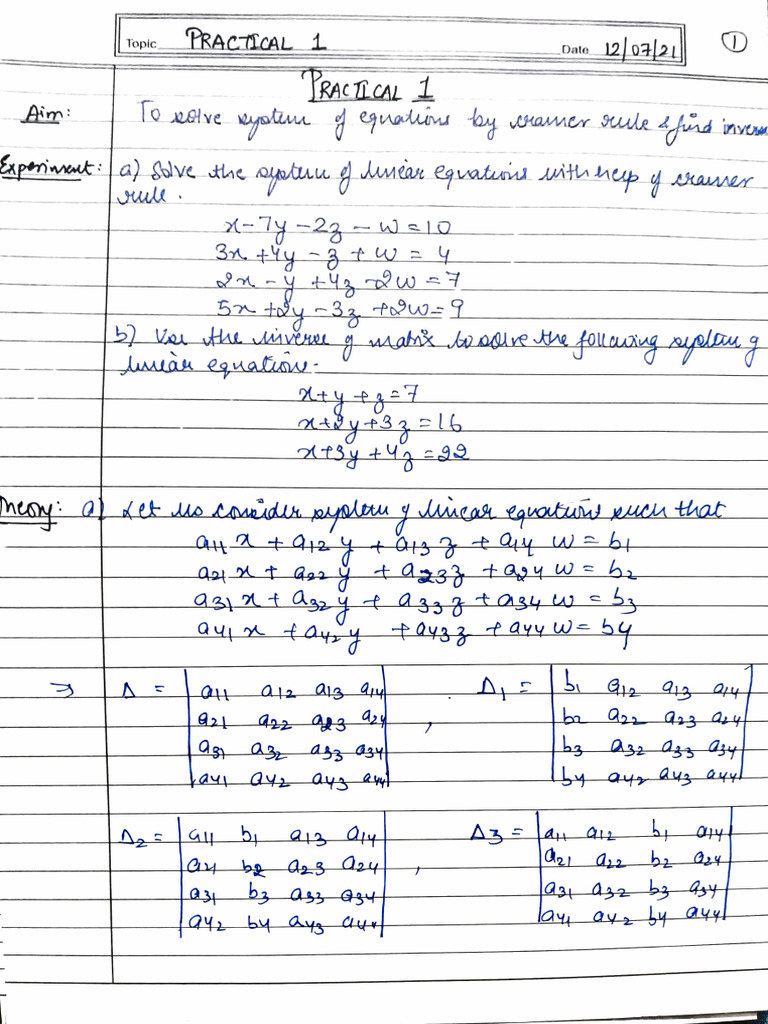 Topic PRACTICAL 1 Date 12/07/21 1
PRACTICAL 1
Aim: To solve system of equations by cramer rule & find inverse
Experiment: a) Solve the system of linear equations with help of cramer
rule.
x-7y-2z-w=10
3x+4y-z+w=4
2x-y+4z-2w=7
5x+2y-3z+2w=9
b) Use the inverse of matrix to solve the following system of
linear equations-
x+y+z=7
x+2y+3z=16
x+3y+4z=22
Theory: a) Let us consider system of linear equations such that
a11 x + a12 y + a13 z + a14 w = b1
a21 x + a22 y + a23 z + a24 w = b2
a31 x + a32 y + a33 z + a34 w = b3
a41 x + a42 y + a43 z + a44 w = b4
→ Δ = | a11 a12 a13 a14 | Δ1 = | b1 a12 a13 a14 |
| a21 a22 a23 a24 | , | b2 a22 a23 a24 |
| a31 a32 a33 a34 | | b3 a32 a33 a34 |
| a41 a42 a43 a44 | | b4 a42 a43 a44 |
Δ2 = | a11 b1 a13 a14 | Δ3 = | a11 a12 b1 a14 |
| a21 b2 a23 a24 | , | a21 a22 b2 a24 |
| a31 b3 a33 a34 | | a31 a32 b3 a34 |
| a42 b4 a43 a44 | | a41 a42 b4 a44 |